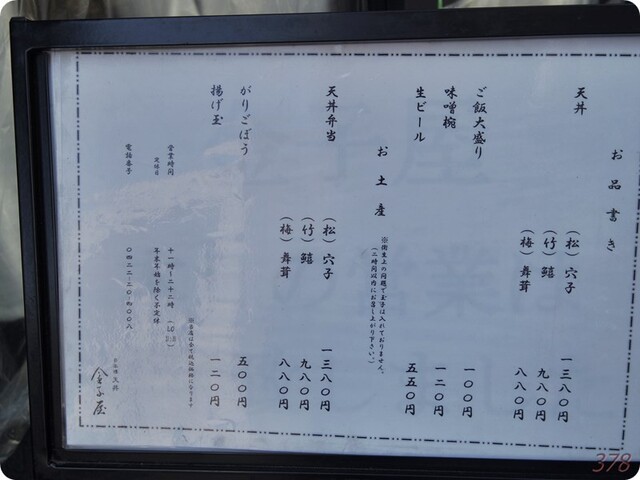 お品書き
天丼
（松）穴子 一三八〇円
（竹）鱚 九八〇円
（梅）舞茸 八八〇円
ご飯大盛り 一〇〇円
味噌椀 一二〇円
生ビール 五五〇円
お土産
※衛生上の問題で玉子は入れておりません。
（二時間以内にお召し上がり下さい。）
天丼弁当
（松）穴子 一三八〇円
（竹）鱚 九八〇円
（梅）舞茸 八八〇円
がりごぼう 五〇〇円
揚げ玉 一二〇円
※当店は全て税込価格になります
営業時間 十一時～二十二時
定休日 年末年始を除く不定休
電話番号 〇四二二‐二〇‐四〇〇八
天丼
金子屋
378